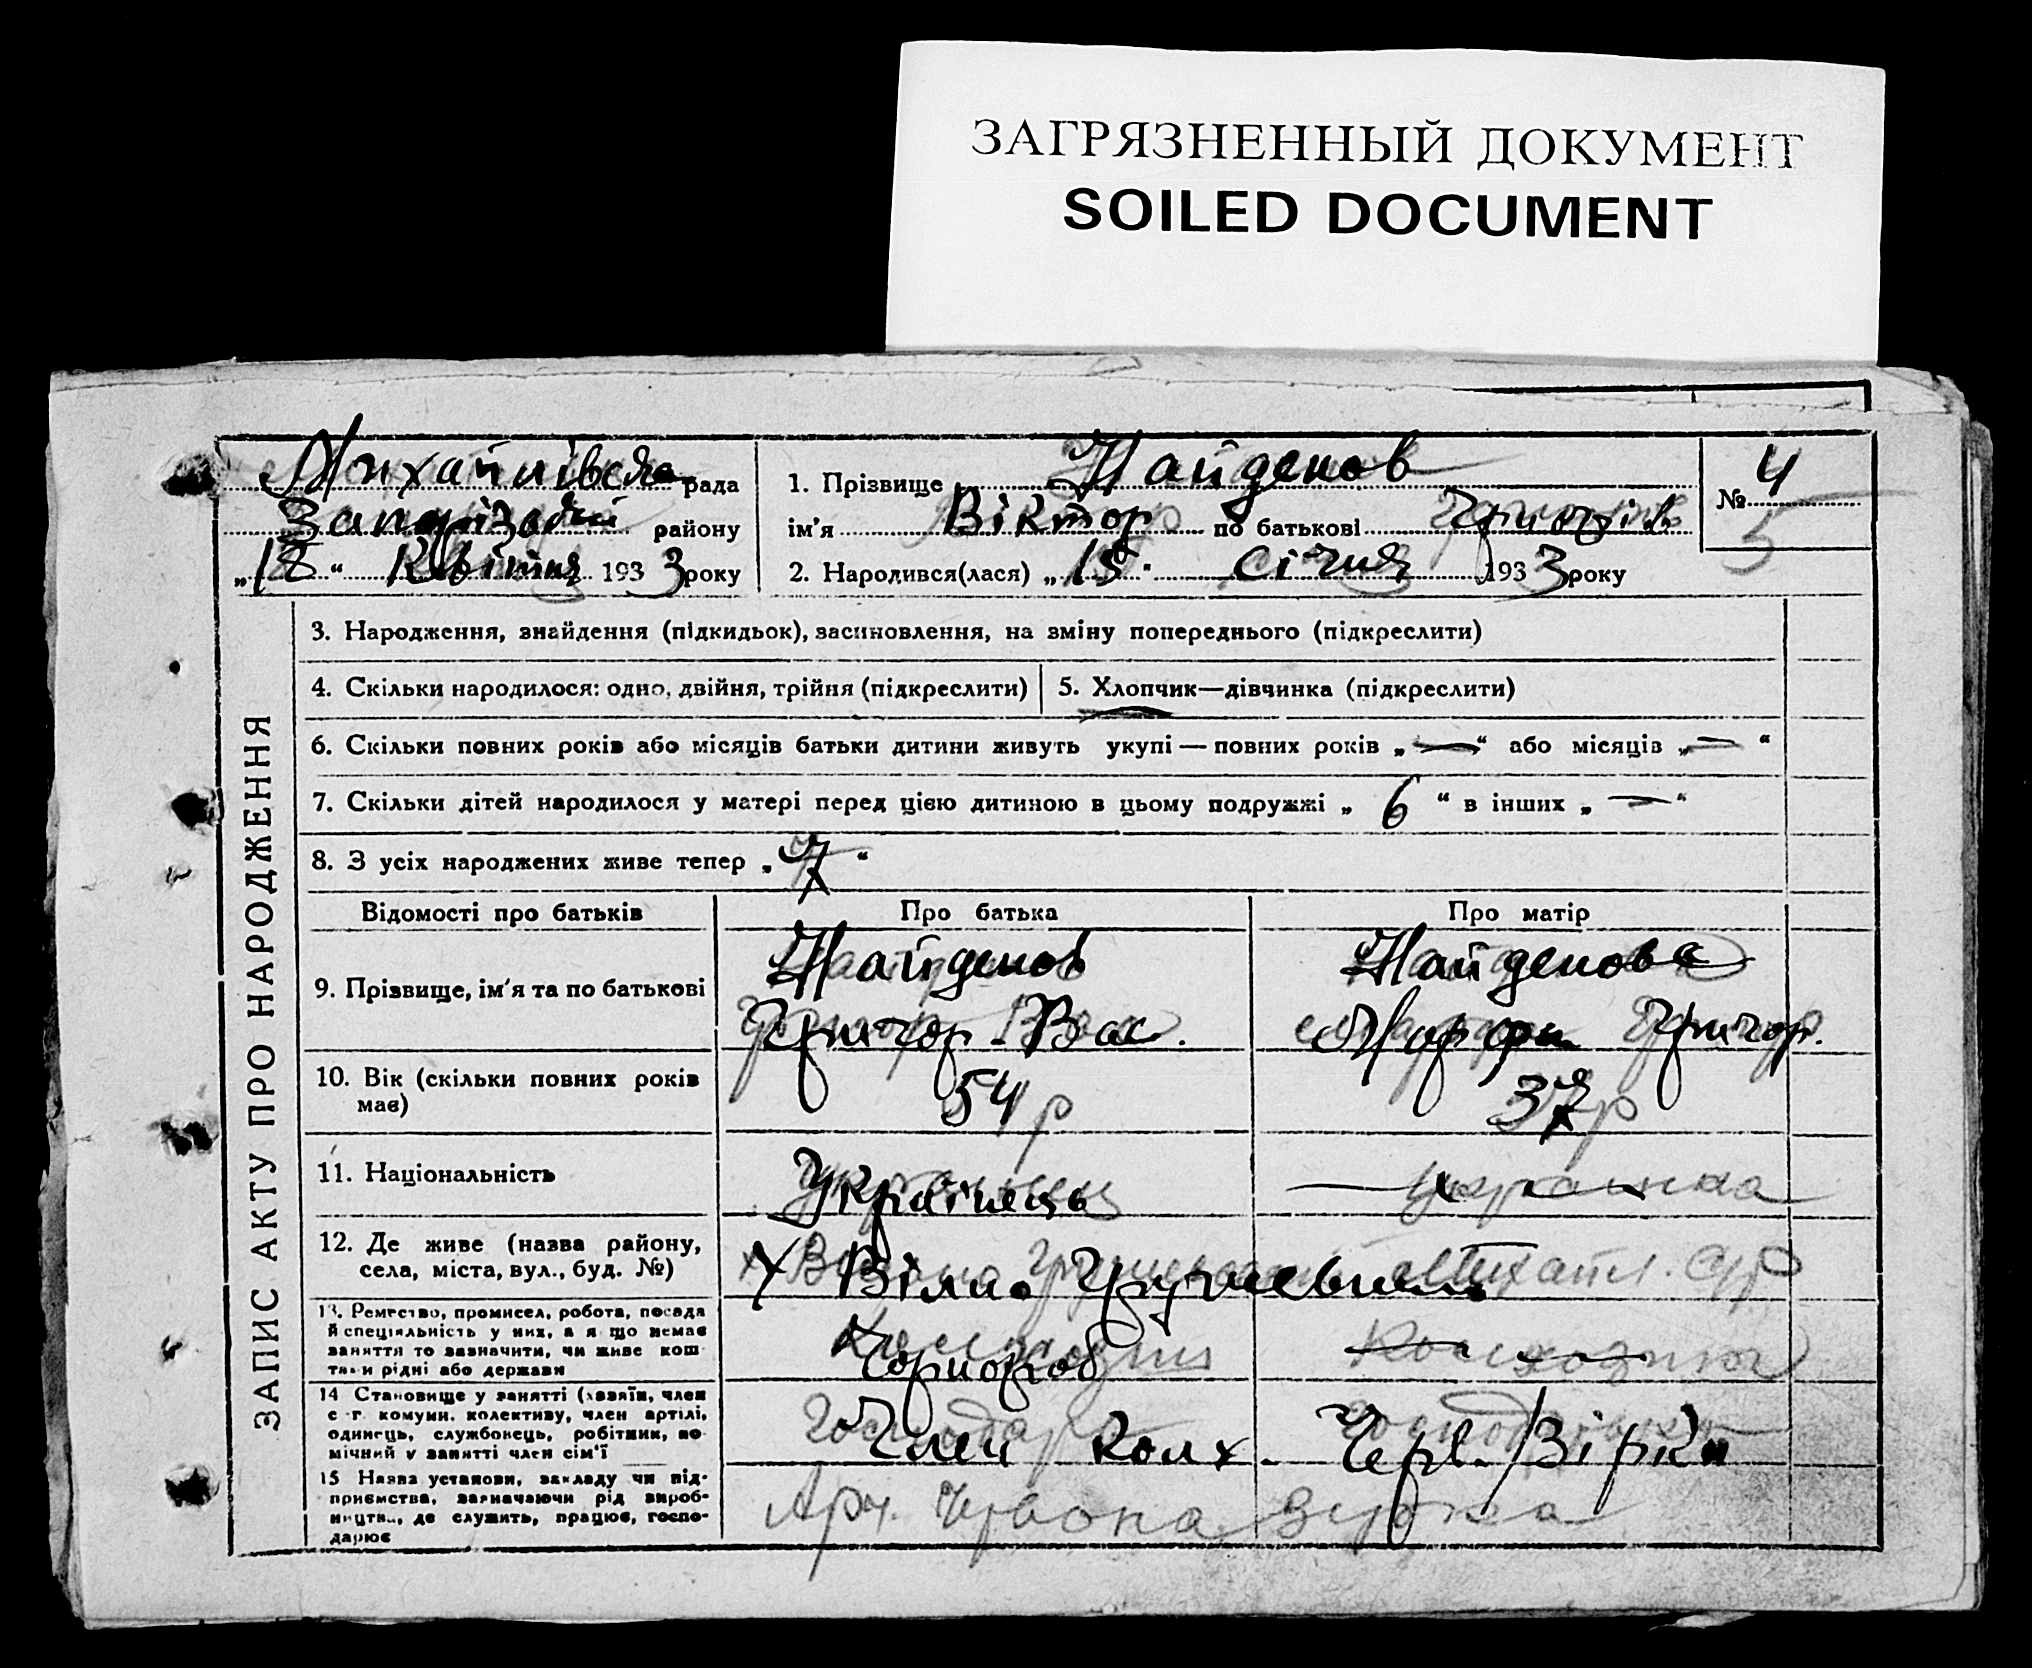 ЗАГРЯЗНЕННЫЙ ДОКУМЕНТ
SOILED DOCUMENT
Михайлівска рада
району
„18“ Квітня 1933 року
1. Прізвище Найденов
ім'я Віктор по батькові Григорів
2. Народився(лася) „15“ січня 1933 року
№ 4
5
ЗАПИС АКТУ ПРО НАРОДЖЕННЯ
3. Народження, знайдення (підкидьок), засиновлення, на зміну попереднього (підкреслити)
4. Скільки народилося: одно, двійня, трійня (підкреслити)
5. Хлопчик—дівчинка (підкреслити)
6. Скільки повних років або місяців батьки дитини живуть укупі — повних років „—“ або місяців „—“
7. Скільки дітей народилося у матері перед цією дитиною в цьому подружжі „ 6 “ в інших „ — “
8. З усіх народжених живе тепер „ 7 “
Відомості про батьків
Про батька
Про матір
9. Прізвище, ім'я та по батькові
Найденов
Григор. Вас.
Найденова
Марфа Григор.
10. Вік (скільки повних років
має)
54 р
37 р
11. Національність
Українець
украинка
12. Де живе (назва району,
села, міста, вул., буд. №)
х Вільно Грушевський Михайл. с/р
13. Ремество, промисел, робота, посада
й спеціяльність у них, а якщо немає
заняття то зазначити, чи живе кош
тами рідні або держави
Чорнороб
14 Становище у занятті (хазяїн, член
с-г. комуни, колективу, член артілі,
одинець, службовець, робітник, по-
мічний у занятті член сім'ї
Член колх. Черв. Зірки
15 Назва установи, закладу чи під-
приємства, зазначаючи рід вироб-
ництва, де служить, працює, госпо-
дарює
Арт. Червона Зирка